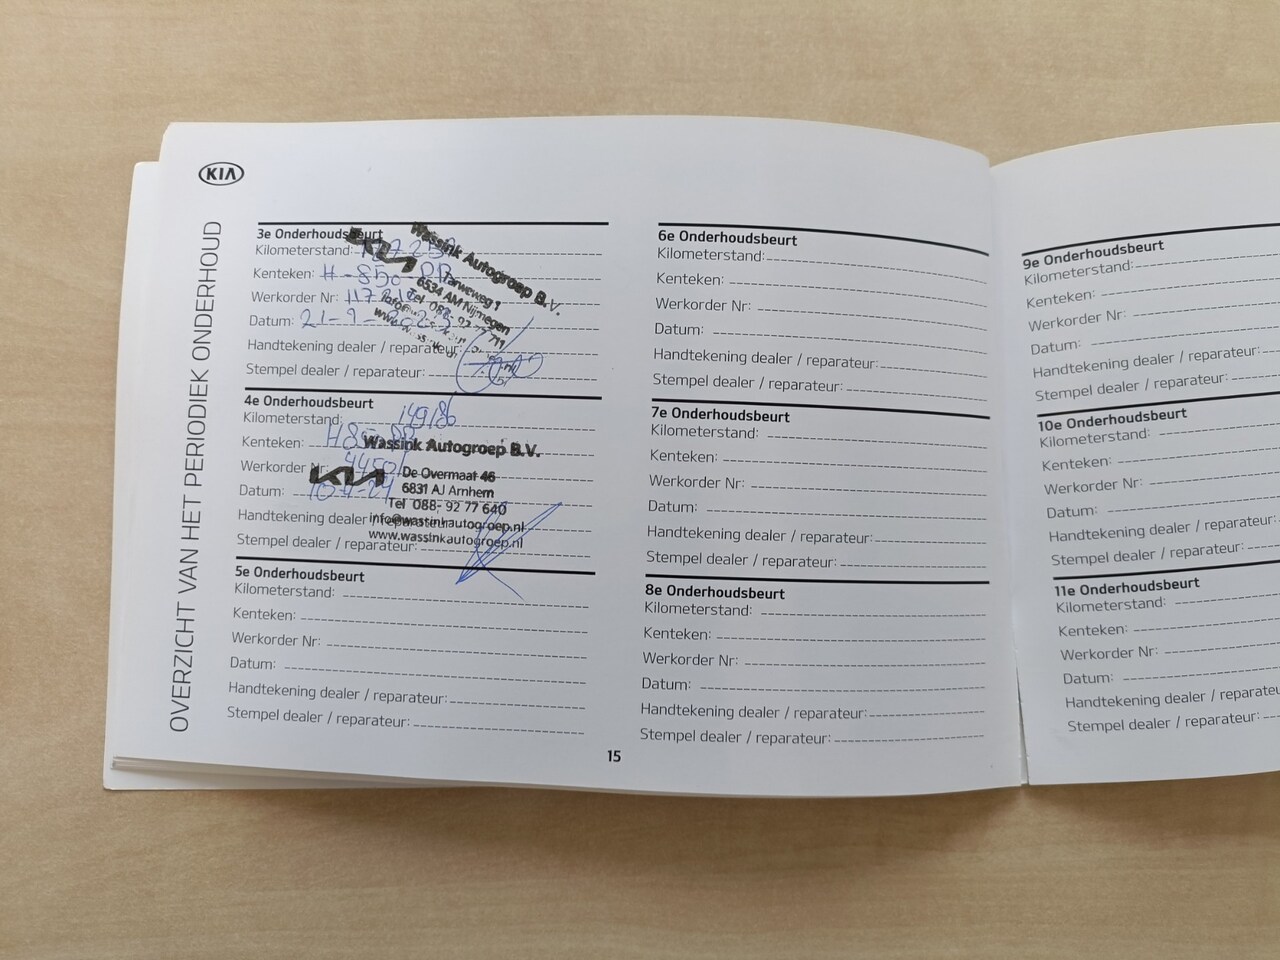 KIA
OVERZICHT VAN HET PERIODIEK ONDERHOUD
3e Onderhoudsbeurt
Kilometerstand:
Kenteken: H-850-
Werkorder Nr:
Datum: 21-9-
Handtekening dealer / reparateur:
Stempel dealer / reparateur:
KIA
Wassink Autogroep B.V.
Tarweweg 1
6534 AM Nijmegen
Tel 088- 92 77 711
4e Onderhoudsbeurt
Kilometerstand: 49186
Kenteken:
Werkorder Nr:
Datum:
Handtekening dealer / reparateur:
Stempel dealer / reparateur:
KIA
Wassink Autogroep B.V.
De Overmaat 46
6831 AJ Arnhem
Tel 088- 92 77 640
info@wassinkautogroep.nl
www.wassinkautogroep.nl
5e Onderhoudsbeurt
Kilometerstand:
Kenteken:
Werkorder Nr:
Datum:
Handtekening dealer / reparateur:
Stempel dealer / reparateur:
6e Onderhoudsbeurt
Kilometerstand:
Kenteken:
Werkorder Nr:
Datum:
Handtekening dealer / reparateur:
Stempel dealer / reparateur:
7e Onderhoudsbeurt
Kilometerstand:
Kenteken:
Werkorder Nr:
Datum:
Handtekening dealer / reparateur:
Stempel dealer / reparateur:
8e Onderhoudsbeurt
Kilometerstand:
Kenteken:
Werkorder Nr:
Datum:
Handtekening dealer / reparateur:
Stempel dealer / reparateur:
15
9e Onderhoudsbeurt
Kilometerstand:
Kenteken:
Werkorder Nr:
Datum:
Handtekening dealer / reparateur:
Stempel dealer / reparateur:
10e Onderhoudsbeurt
Kilometerstand:
Kenteken:
Werkorder Nr:
Datum:
Handtekening dealer / reparateur:
Stempel dealer / reparateur:
11e Onderhoudsbeurt
Kilometerstand:
Kenteken:
Werkorder Nr:
Datum:
Handtekening dealer / reparateu
Stempel dealer / reparateur: